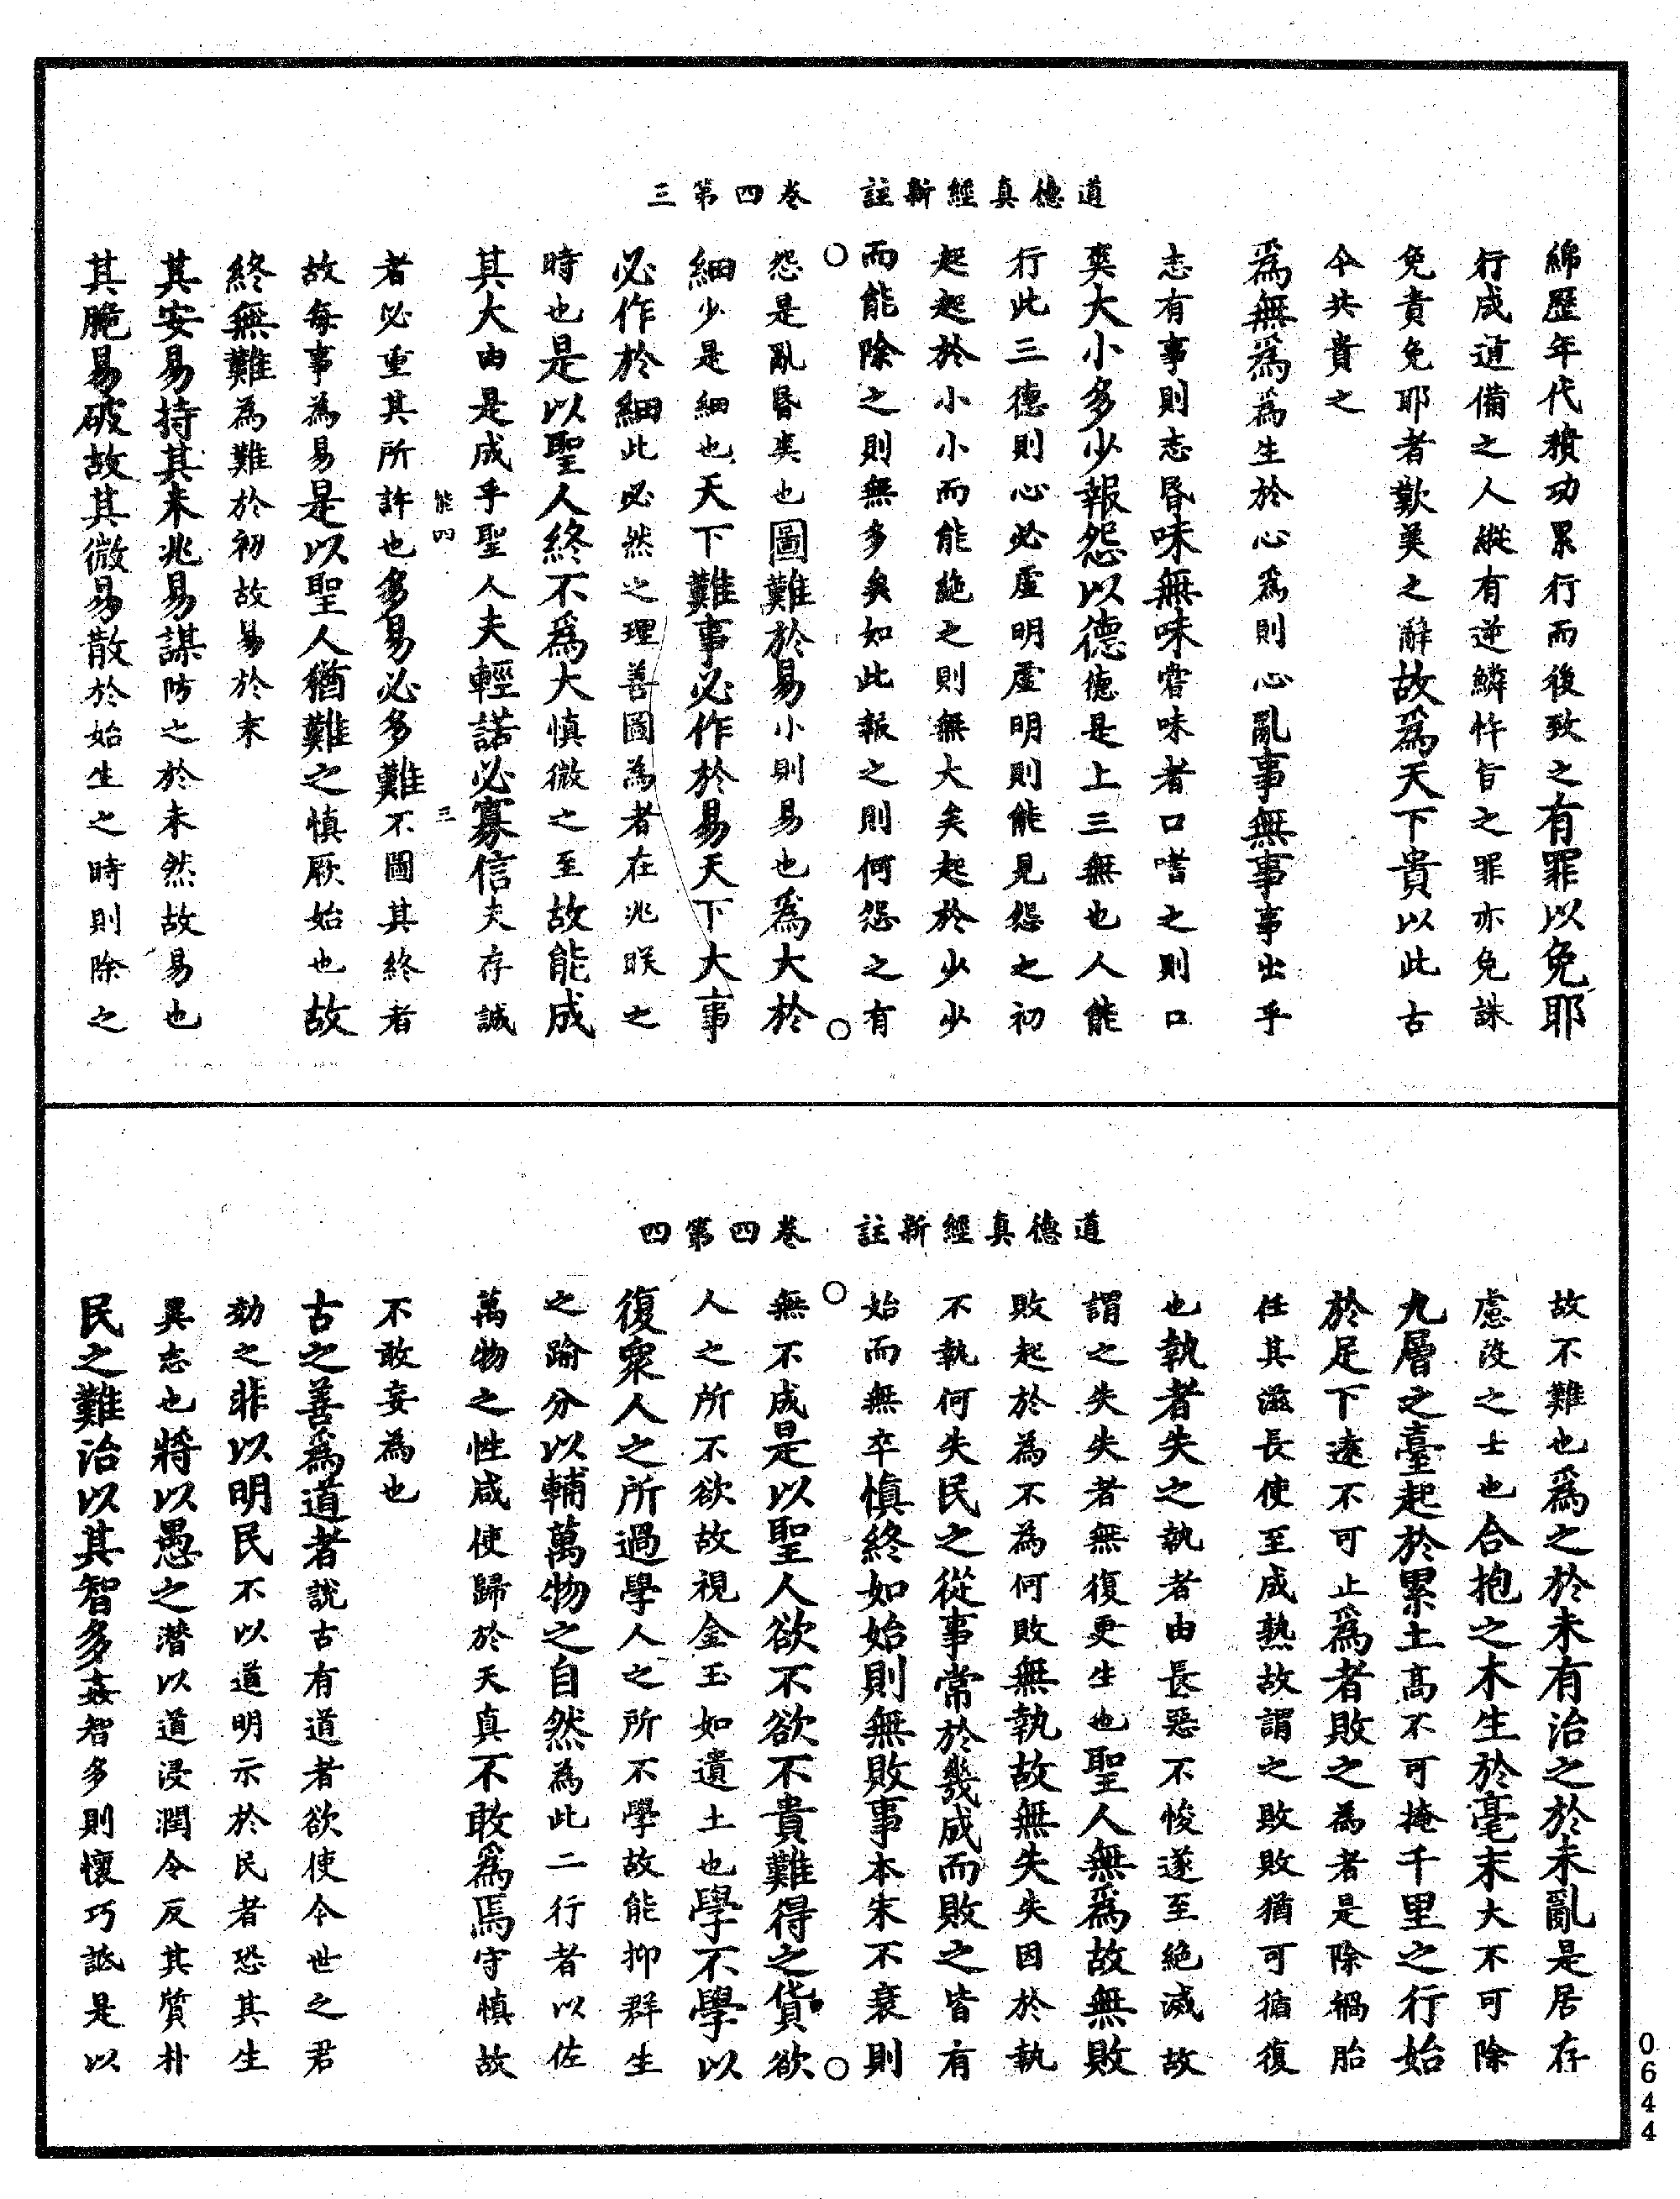 道德真經新註　卷四第三
綿歷年代積功累行而後致之有罪以免耶
行成道備之人縱有逆鱗忤旨之罪亦免誅
免貴免耶者歎美之辭故爲天下貴以此古
今共貴之
爲無爲為生於心為則心亂事無事事出乎
志有事則志昏味無味嘗味者口嗜之則口
爽大小多少報怨以德德是上三無也人能
行此三德則心必虛明虛明則能見怨之初
起起於小小而能絶之則無大矣起於少少
而能除之則無多矣如此報之則何怨之有
怨是亂昏爽也圖難於易小則易也爲大於
細少是細也天下難事必作於易天下大事
必作於細此必然之理善圖為者在兆眹之
時也是以聖人終不爲大慎微之至故能成
其大由是成乎聖人夫輕諾必寡信夫存誠
能四　三
者必重其所許也多易必多難不圖其終者
故每事為易是以聖人猶難之慎厥始也故
終無難為難於初故易於末
其安易持其未兆易謀防之於未然故易也
其脆易破故其微易散於始生之時則除之
道德真經新註　卷四第四
故不難也爲之於未有治之於未亂是居存
慮沒之士也合抱之木生於毫末大不可除
九層之臺起於累土高不可掩千里之行始
於足下遠不可止爲者敗之為者是除禍胎
任其滋長使至成熟故謂之敗敗猶可循復
也執者失之執者由長惡不悛遂至絶滅故
謂之失失者無復更生也聖人無爲故無敗
敗起於為不為何敗無執故無失失因於執
不執何失民之從事常於幾成而敗之皆有
始而無卒慎終如始則無敗事本末不衰則
無不成是以聖人欲不欲不貴難得之貨欲
人之所不欲故視金玉如遺土也學不學以
復衆人之所過學人之所不學故能抑群生
之踰分以輔萬物之自然為此二行者以佐
萬物之性咸使歸於天真不敢爲焉守慎故
不敢妄為也
古之善爲道者說古有道者欲使今世之君
効之非以明民不以道明示於民者恐其生
異志也將以愚之潛以道浸潤令反其質朴
民之難治以其智多姦智多則懷巧詆是以
0644